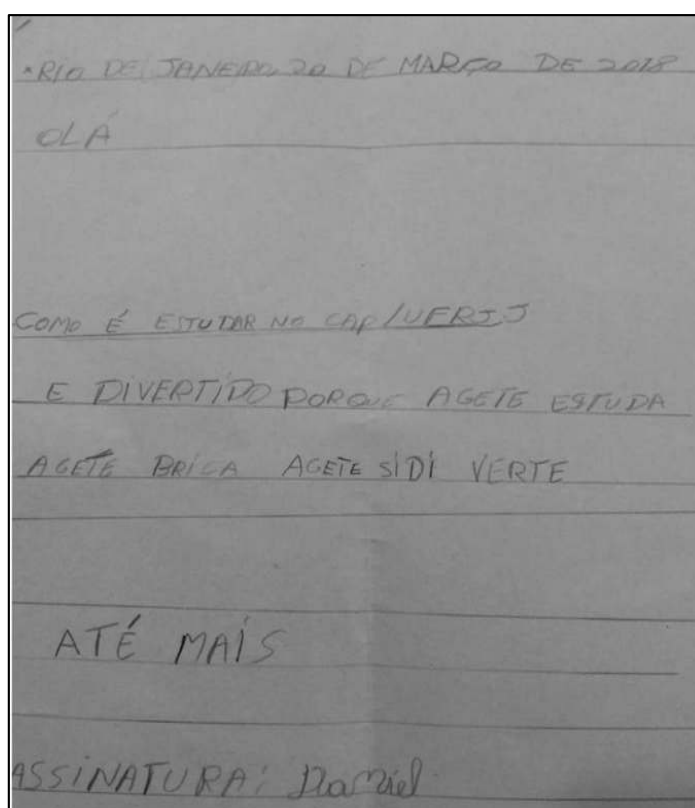 RIO DE JANEIRO, 20 DE MARÇO DE 2018
OLÁ
COMO É ESTUDAR NO CAP/UFRJ
E DIVERTIDO PORQUE AGETE ESTUDA
AGETE BRICA AGETE SIDI VERTE
ATÉ MAIS
ASSINATURA: Daniel